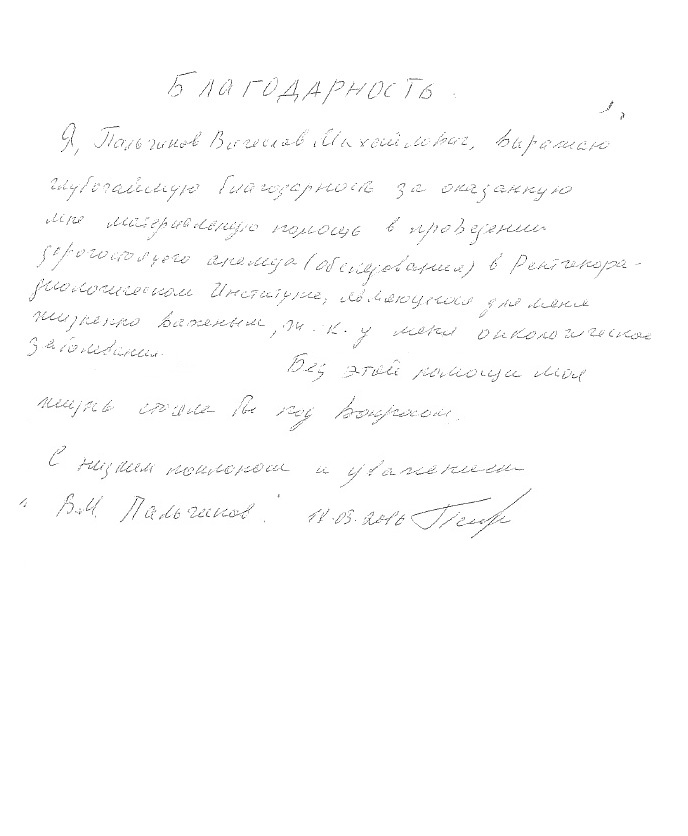 БЛАГОДАРНОСТЬ.
Я, Пальчиков Вячеслав Михайлович, выражаю
глубочайшую благодарность за оказанную
мне материальную помощь в проведении
дорогостоящего анализа (обследования) в Рентгенора-
диологическом Институте, являющегося для меня
жизненно важным, т.к. у меня онкологическое
заболевание.
Без этой помощи моя
жизнь стояла бы под вопросом.
С низким поклоном и уважением
В.М. Пальчиков. 18.03.2016